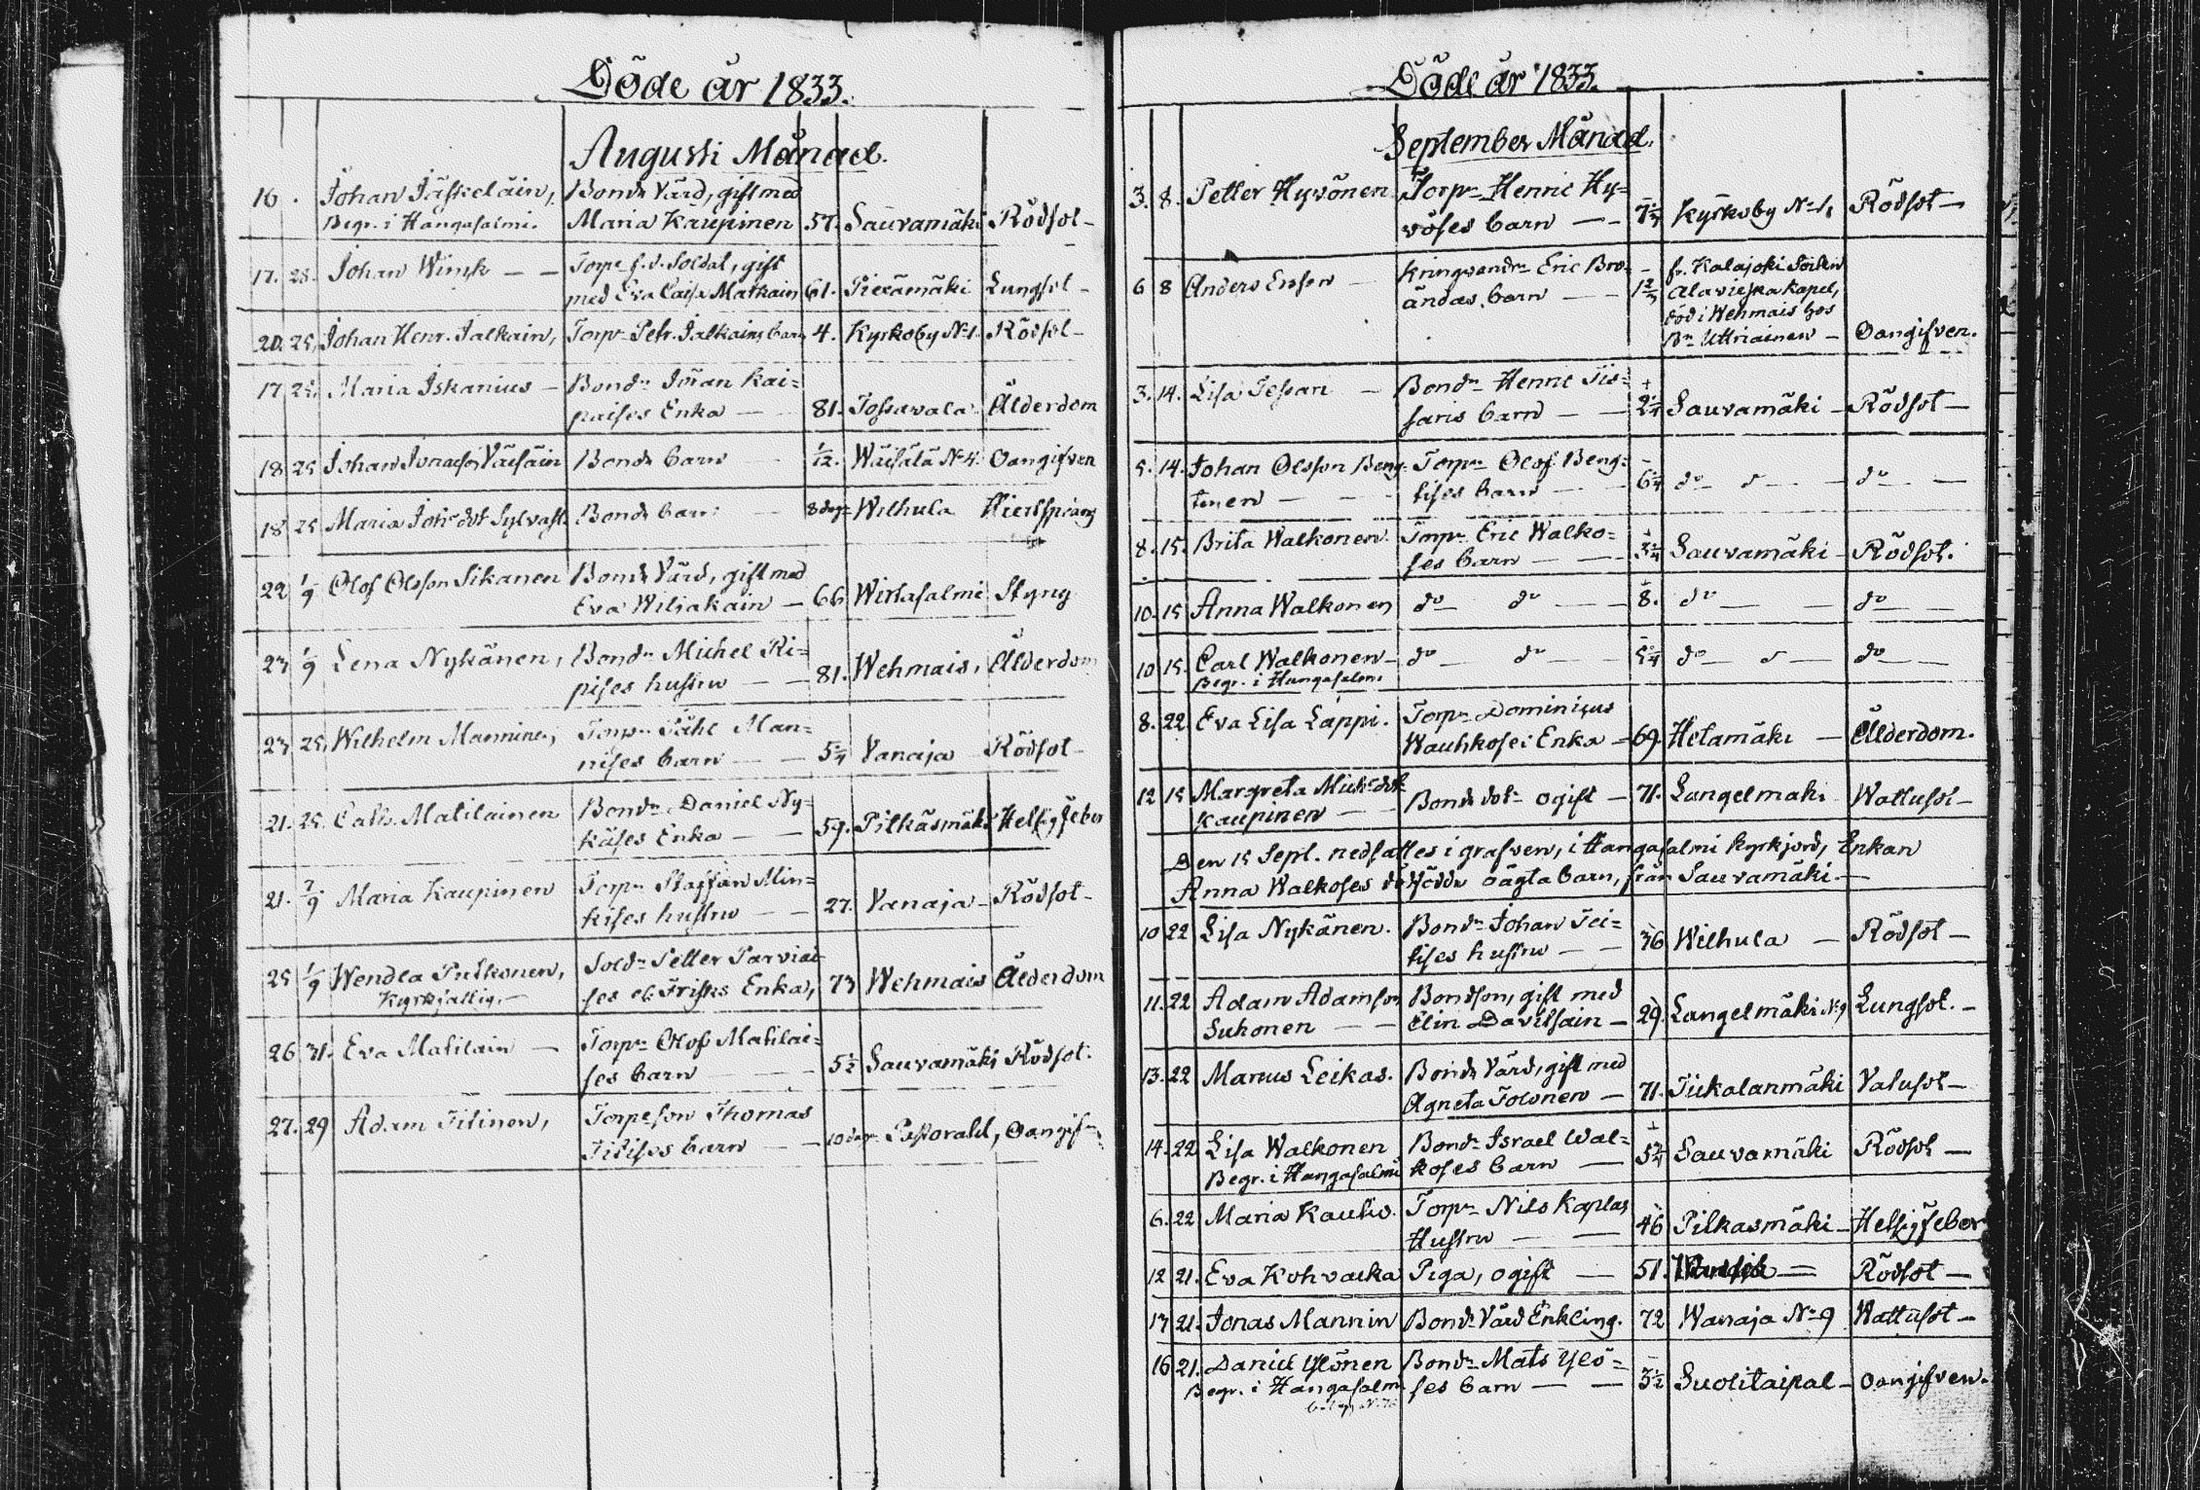 Döde år 1833.
Augusti Månad.
16 . Johan Jäskeläin, Bonde Värd, gift med
Begr. i Hangasalmi. Maria Kaupinen 57. Sauvamäki Rödsot-
17. 25. Johan Winck - - Torpe f.d. Soldat, gift
med Eva Caisa Matkain 61. Piexämäki Lungsot -
20. 25. Johan Henr. Jalkain, Torpr Petr. Jalkains barn 4. Kyrkoby No 1. Rödsot -
17 25. Maria Iskanius - Bondn Johan Kai=
paises Enka - 81. Tossavala Ålderdom
18 25 Johan Jonasson Väisäin Bonde barn - 1/12. Wäisälä No 4. Oangifven
18 25 Maria Johsdot Sylvast. Bonde barn - 8 dagr Wilhula
22 1/9 Olof Olsson Sikanen Bonde Värd, gift med
Eva Wiljakain - 66 Wirtasalmi Styng
23 1/9 Lena Nykänen, Bondn Michel Ri=
pises hustru - - 81. Wehmais, Ålderdom
23 25. Wilhelm Manninen, Torpr Påhl Man=
nises barn - - 5 3/4 Vanaja Rödsot -
21. 25. Cath. Matilainen Bondn Daniel Ny=
käses Enka - - 59. Pilkäsmäki Hetsigfeber
21. 7/9 Maria Kaupinen Torpn Staffan Min=
kises hustru - - 27. Vanaja - Rödsot -
25 1/9 Wendla Pulkonen, Soldn Petter Parviai=
Kyrkfattig. - ses el. Frisks Enka, 73 Wehmais Ålderdom
26 31. Eva Matilain - Torpr Olof Matilai=
ses barn - 5 1/2 Sauvamäki Rödsot.
27. 29 Adam Titinen, Torpeson Thomas
Titises barn - - 10 dagr Oangif
Döde år 1833.
September Månad.
3. 8. Petter Hyvönen Torpr Henric Hy=
vöses barn - - Kyrkoby No 1, Rödsot -
6 8 Anders Ersson - Kringvandr Eric Bro- fr. Kalajoki Socken
ändas barn - - Alavieska Kapel,
död i Wehmais hos
Bn Uttriainen - Oangifven.
3. 14. Lisa Tessan - Bondn Henric Tis=
saris barn - - 2 1/4 Sauvamäki - Rödsot -
5. 14. Johan Olsson Beng= Torpn Olof Beng=
tinen - - tises barn - 6 1/4 do - do -
8. 15. Brita Walkonen. Torpr Eric Walko=
ses barn - - Sauvamäki - Rödsot.
10. 15 Anna Walkonen do - do - - 8. do - - do -
10 15. Carl Walkonen - do - do - do - do -
Begr. i Hangasalmi
8. 22. Eva Lisa Lappi. Torpn Dominicus
Wauhkosei Enka - 69. Hetamäki - Ålderdom.
12 15 Margreta Michsdot
Kaupinen - - Bonde dotr ogift - 71. Langelmaki Wattusot -
Den 15 Sept. nedsattes i grafven, i Hangasalmi kyrkjord, Enkan
Anna Walkoses dödfödde oägta barn, från Sauvamäki. -
10 22 Lisa Nykänen. Bondn Johan Tei=
tises hustru - - 36 Wilhula - Rödsot -
11. 22 Adam Adamson Bondson, gift med
Suhonen - - Elin Davilsain - 29. Langelmäki No 9 Lungsot. -
13. 22 Marcus Leikas. Bonde Värd, gift med
Agneta Tolonen - 71. Tiikalanmäki Vatusot -
14. 22 Lisa Walkonen Bondn Israel Wal=
Begr. i Hangasalmi koses barn - 5 3/4 Sauvamäki Rödsot -
6. 22 Maria Kauho. Torpn Nils Kaplas
Hustru - - 46 Pilkasmäki - Hetsigfeber
12 21. Eva Kohvacka Piga, ogift - 51. Rödsot -
13 21. Jonas Mannin Bonde Värd Enkling. 72 Wanaja No 9 Wattusot -
16 21. Daniel Ylönen Bondn Mats Ylö=
Begr. i Hangasalmi ses barn - - 3 1/2 Suolitaipal - Oangifven.